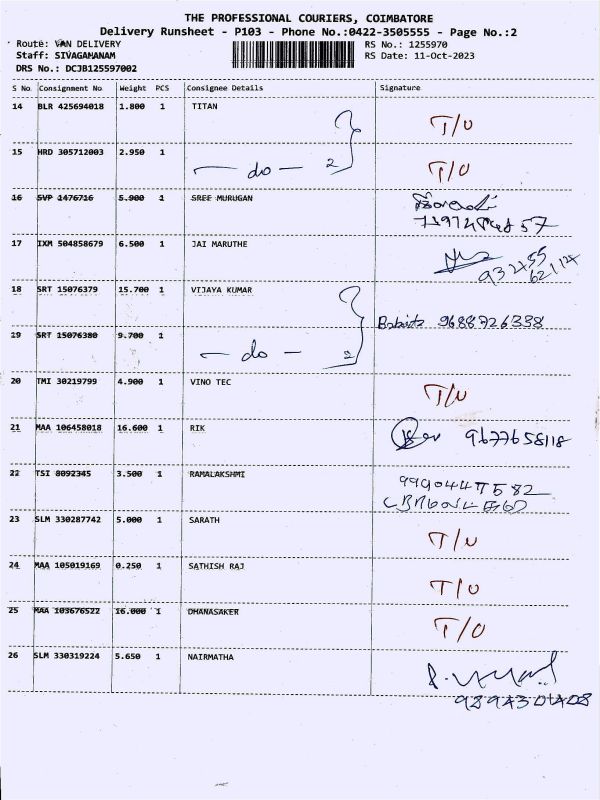 THE PROFESSIONAL COURIERS, COIMBATORE
Delivery Runsheet - P103 - Phone No.:0422-3505555 - Page No.:2
Route: VAN DELIVERY RS No.: 1255970
Staff: SIVAGAMANAM RS Date: 11-Oct-2023
DRS No.: DCJB125597002
S No Consignment No Weight PCS Consignee Details Signature
14 BLR 425694018 1.800 1 TITAN T/U
15 HRD 305712003 2.950 1 — do — 2 T/U
16 SVP 1476716 5.900 1 SREE MURUGAN
17 IXM 504858679 6.500 1 JAI MARUTHE
18 SRT 15076379 15.700 1 VIJAYA KUMAR 9688726338
19 SRT 15076380 9.700 1 — do — 2
20 TMI 30219799 4.900 1 VINO TEC T/U
21 MAA 106458018 16.600 1 RIK 9677658118
22 TSI 8092345 3.500 1 RAMALAKSHMI
23 SLM 330287742 5.000 1 SARATH T/U
24 MAA 105019169 0.250 1 SATHISH RAJ T/U
25 MAA 103676522 16.000 1 DHANASAKER T/U
26 SLM 330319224 5.650 1 NAIRMATHA